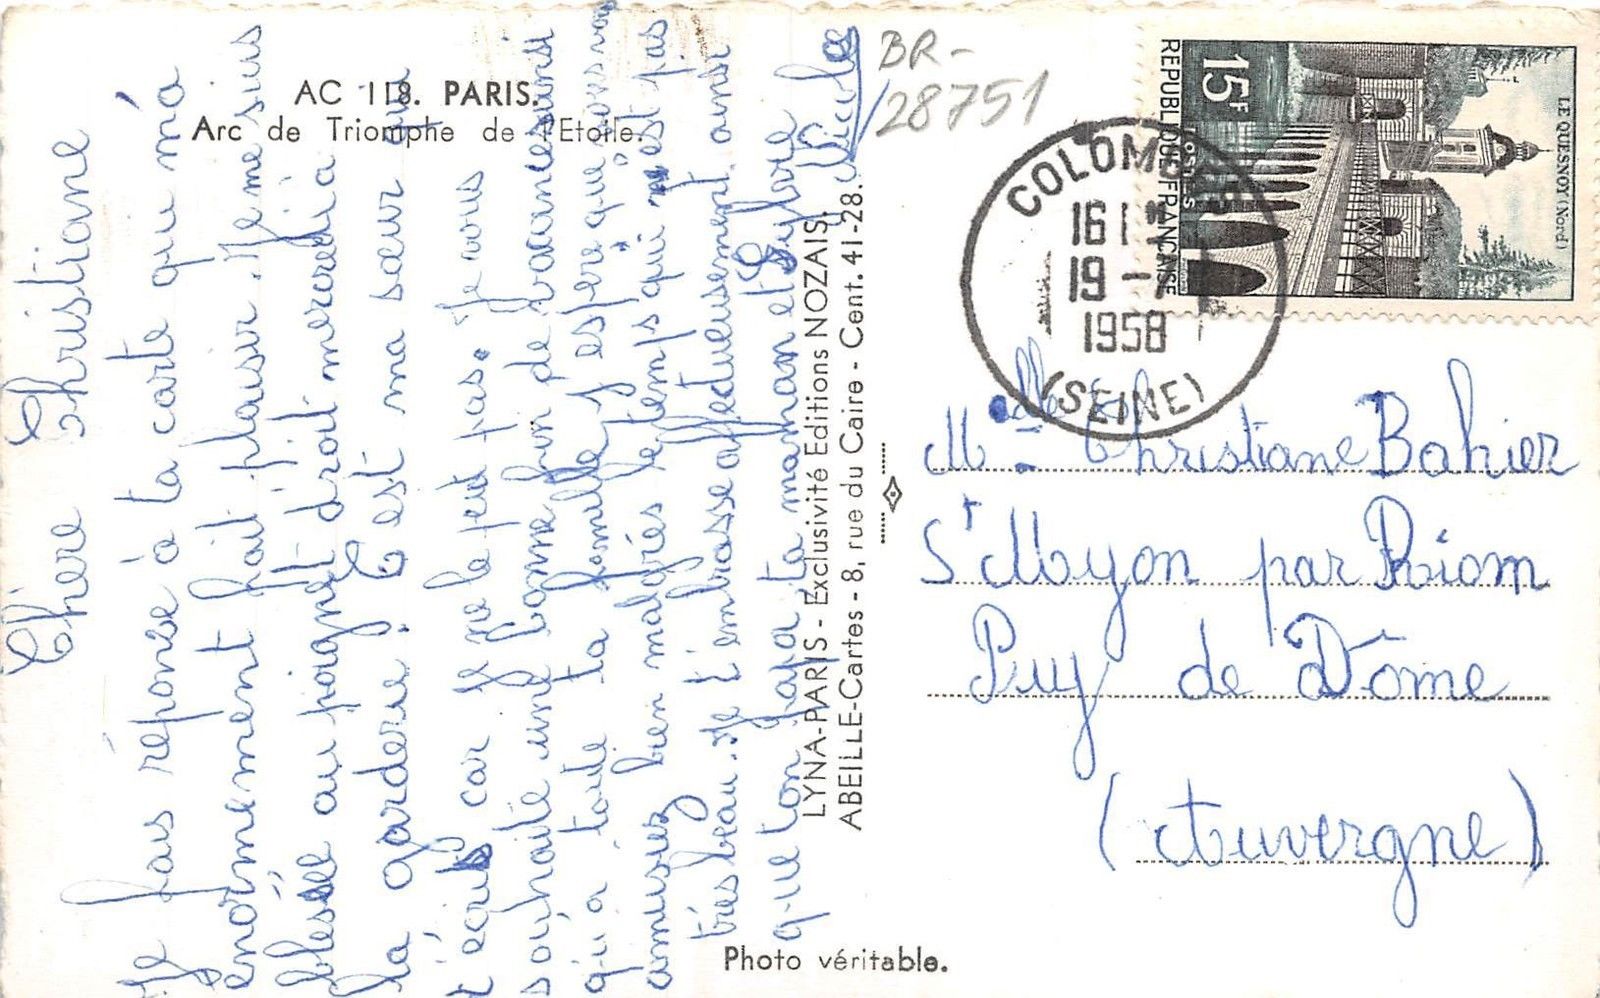 AC 118. PARIS.
Arc de Triomphe de l'Etoile.
Chère Christiane
Je fais réponse à ta carte qui m'a
enormement fait plaisir. Je me suis
blessée au poignet droit mercredi à
la garderie. C'est ma sœur qui
t'écris car je ne le peut pas. Je vous
souhaite une bonne fin de vacances ainsi
qu'a toute ta famille j'espère que vous vous
amusez bien malgrés le temps qui n'est pas
très beau. Je t'embrasse affectueusement ainsi
que ton papa, ta maman et Sylvie
Nicole
LYNA-PARIS - Exclusivité Editions NOZAIS.
ABEILLE-Cartes - 8, rue du Caire - Cent. 41-28.
Photo véritable.
BR-
28751
COLOMBES
16 H
19 -
1958
(SEINE)
15F
POSTES
REPUBLIQUE FRANÇAISE
LE QUESNOY (Nord)
Melle Christiane Bahier
St Myon par Riom
Puy de Dôme
(Auvergne)